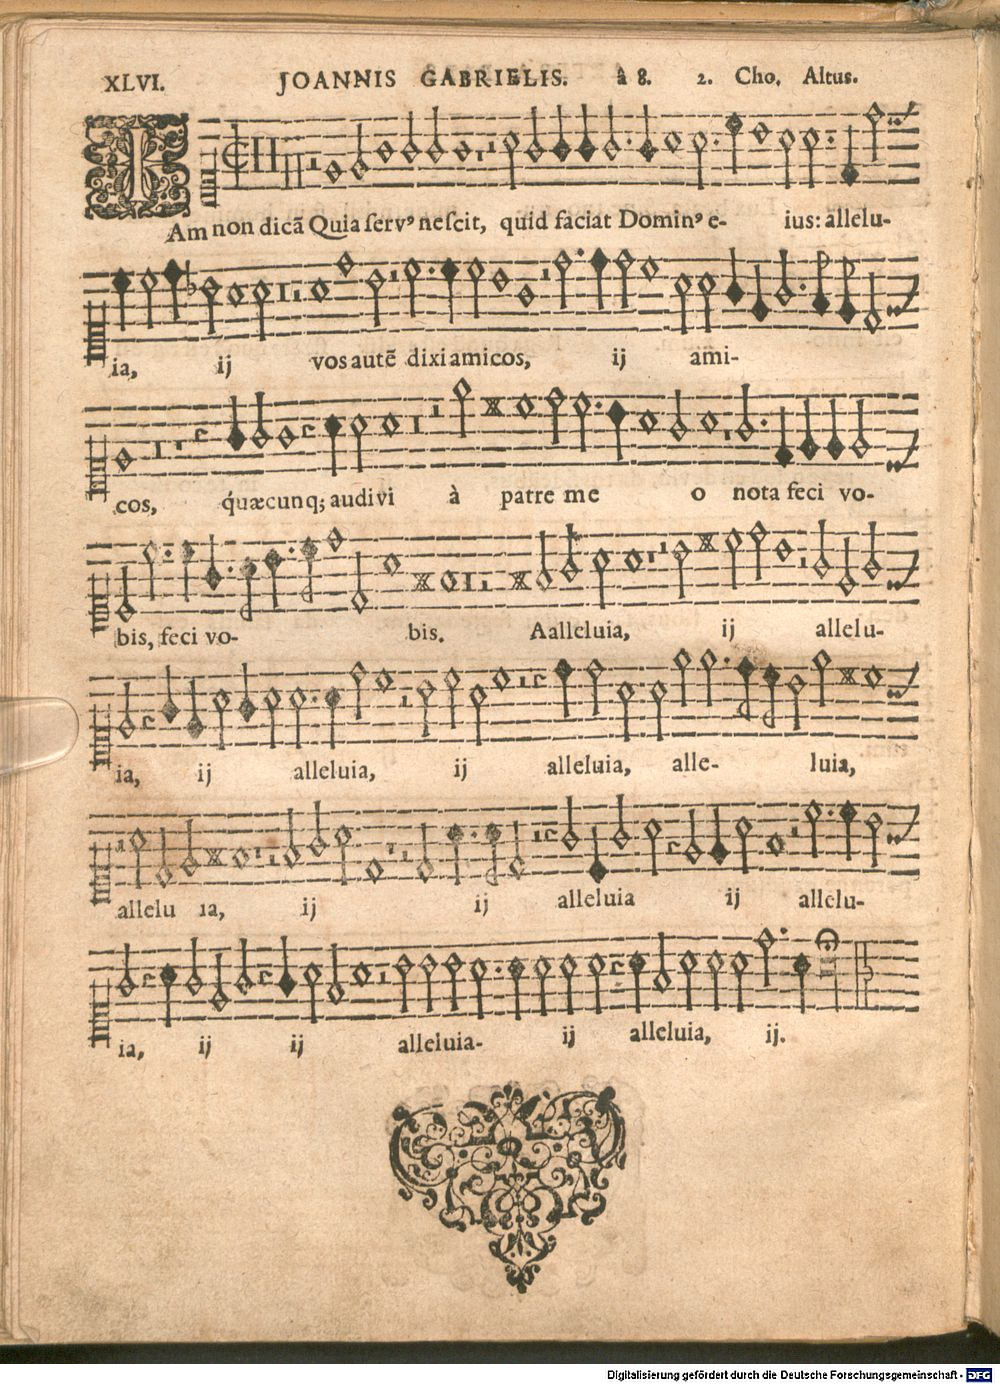 XLVI. JOANNIS GABRIELIS. à 8. 2. Cho. Altus.
IAm non dicã Quia servꝰ nescit, quid faciat Dominꝰ e- ius: allelu-
ia, ij vos autẽ dixi amicos, ij ami-
cos, q́uæcunq; audivi à patre me o nota feci vo-
bis, feci vo- bis. Aalleluia, ij allelu-
ia, ij alleluia, ij alleluia, alle- luia,
allelu ia, ij ij alleluia ij allelu-
ia, ij ij alleluia- ij alleluia, ij.
Digitalisierung gefördert durch die Deutsche Forschungsgemeinschaft - DFG